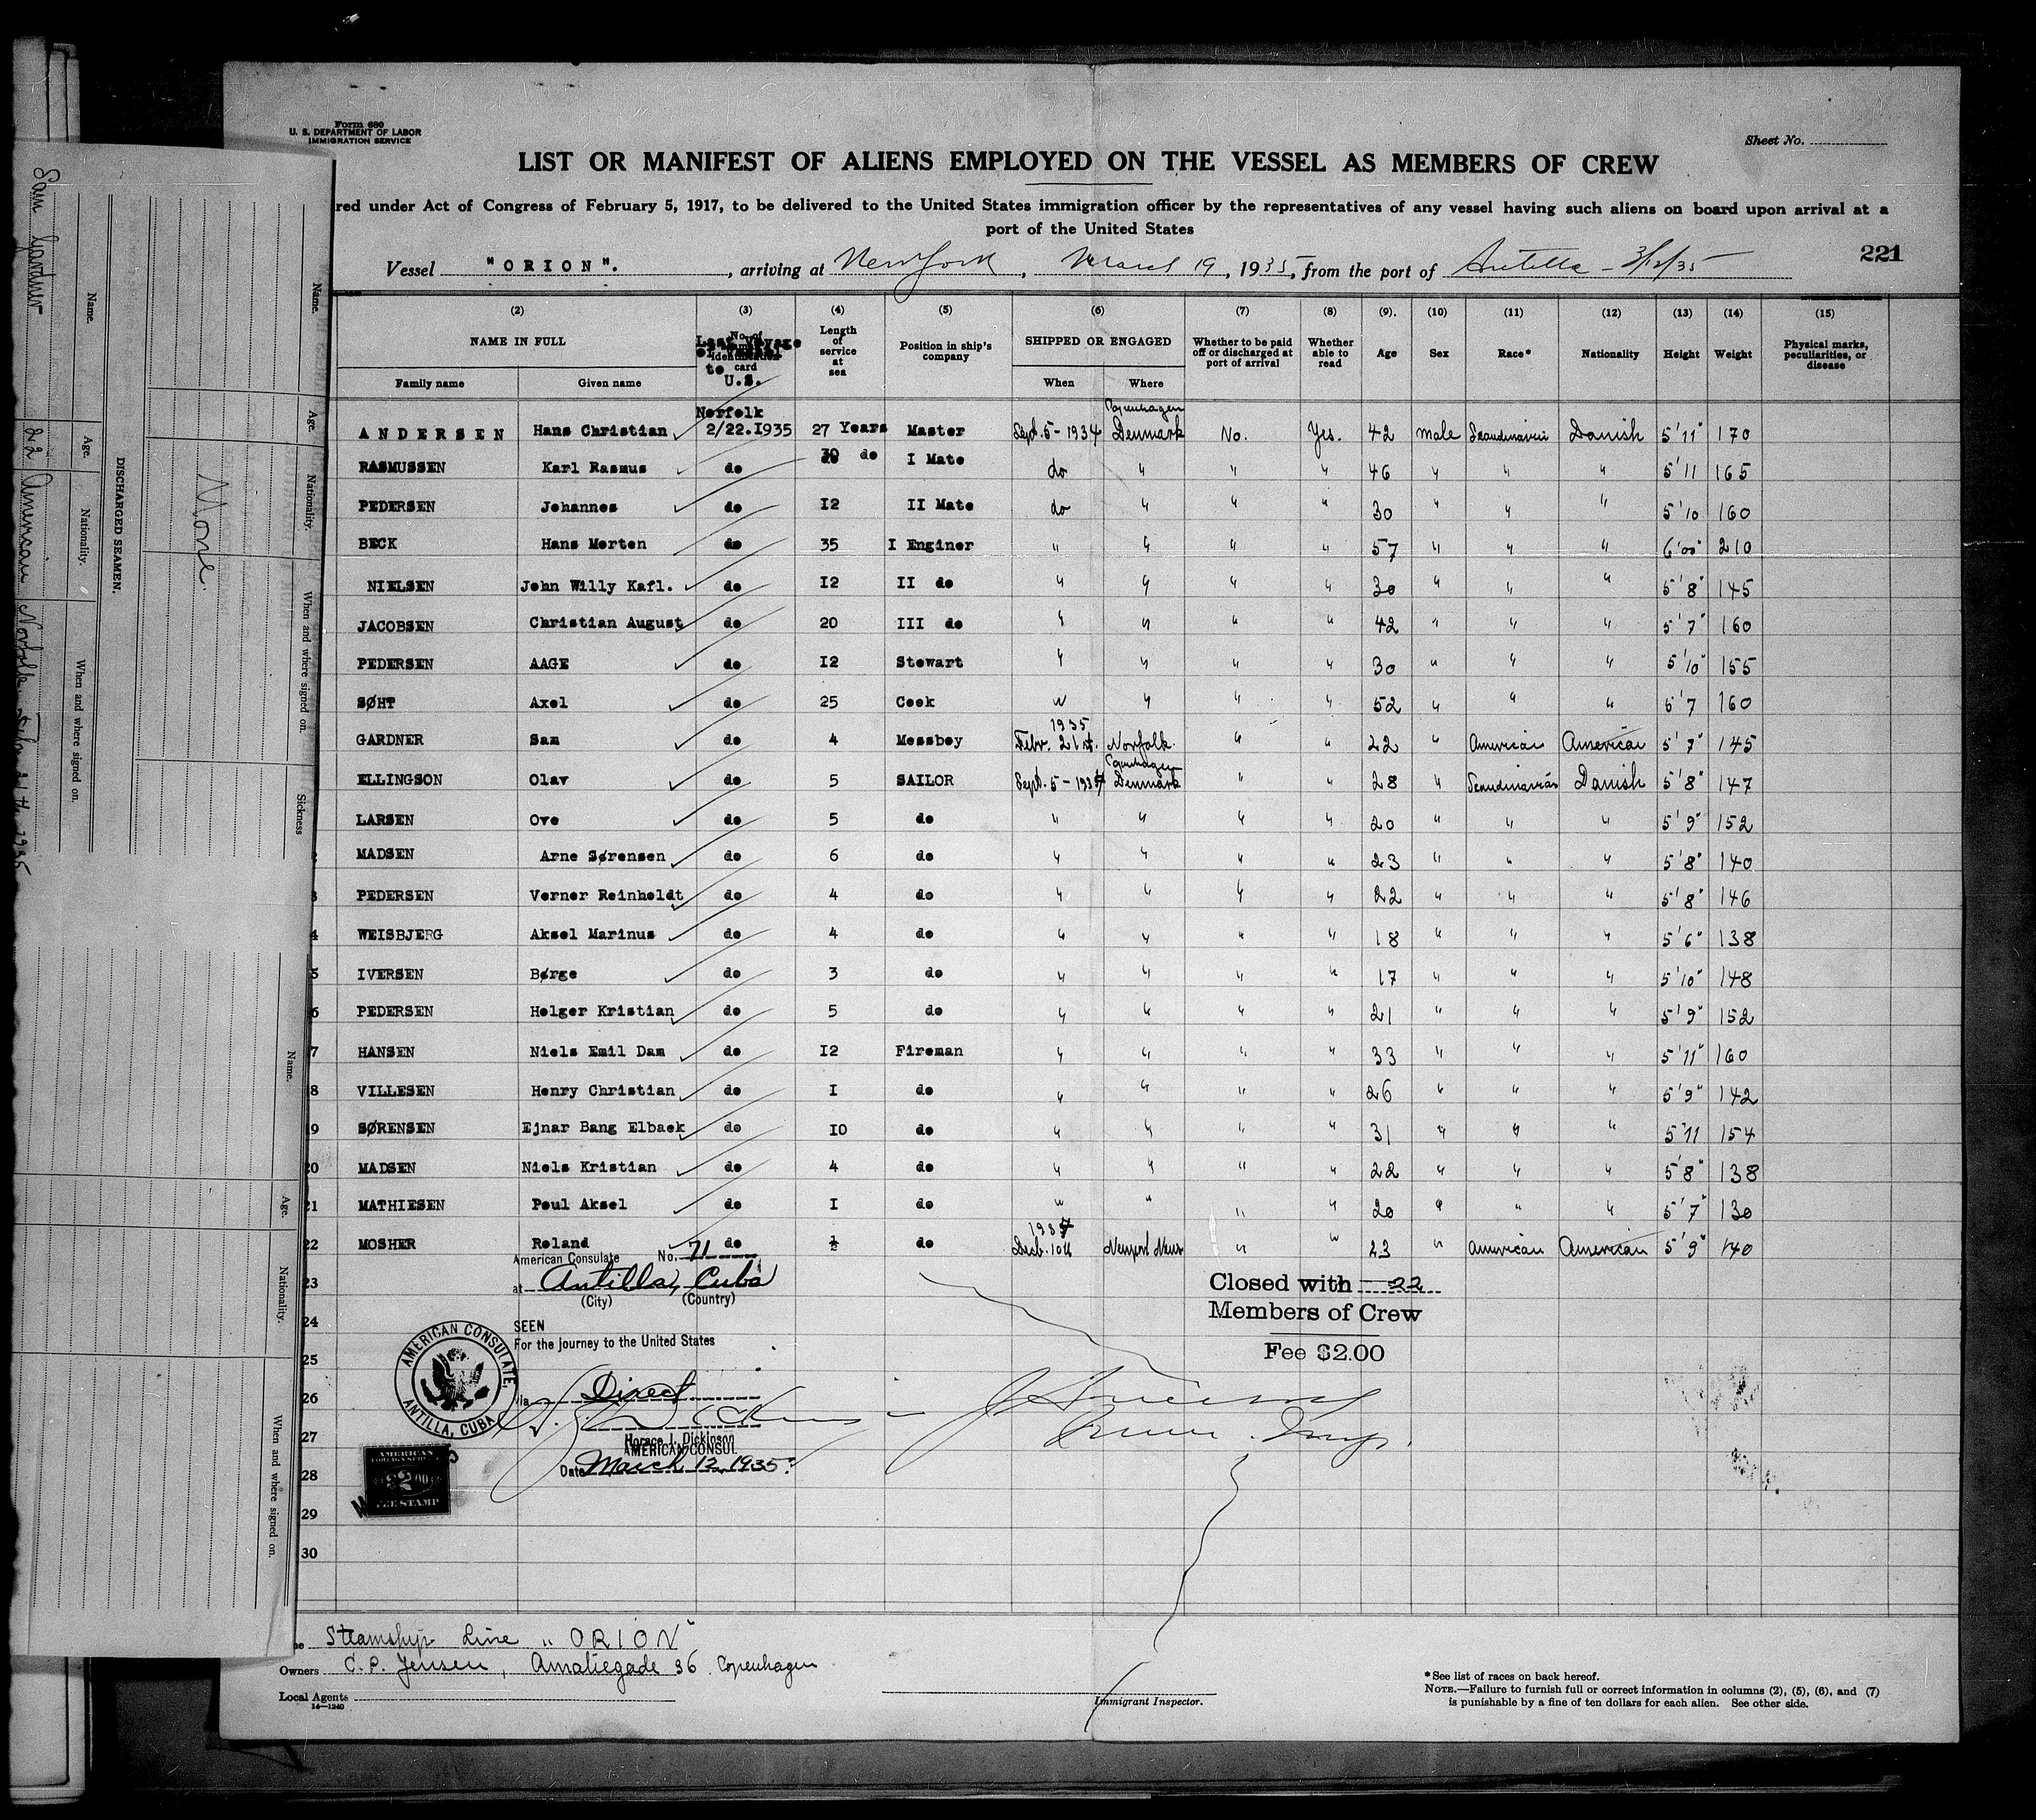 Form 680
U. S. DEPARTMENT OF LABOR
IMMIGRATION SERVICE
Sheet No.
LIST OR MANIFEST OF ALIENS EMPLOYED ON THE VESSEL AS MEMBERS OF CREW
red under Act of Congress of February 5, 1917, to be delivered to the United States immigration officer by the representatives of any vessel having such aliens on board upon arrival at a
port of the United States
221
Vessel "ORION". , arriving at New York , March 19 , 1935 , from the port of Antilla - 3/12/35
(2) (3) (4) (5) (6) (7) (8) (9). (10) (11) (12) (13) (14) (15)
NAME IN FULL Last Voyage to U.S. Length of service at sea Position in ship's company SHIPPED OR ENGAGED Whether to be paid off or discharged at port of arrival Whether able to read Age Sex Race* Nationality Height Weight Physical marks, peculiarities, or disease
Family name Given name When Where
ANDERSEN Hans Christian Norfolk 2/22.I935 27 Years Master Sept. 5 - 1934 Copenhagen Denmark No. Yes. 42 male Scandinavian Danish 5'11" 170
RASMUSSEN Karl Rasmus do 30 do I Mate do " " " 46 " " " 5'11 165
PEDERSEN Johannes do I2 II Mate do " " " 30 " " " 5'10 160
BECK Hans Morten do 35 I Enginer " " " " 57 " " " 6'00" 210
NIELSEN John Willy Kafl. do I2 II do " " " " 30 " " " 5'8" 145
JACOBSEN Christian August do 20 III do " " " " 42 " " " 5'7" 160
PEDERSEN AAGE do I2 Stewart " " " " 30 " " " 5'10" 155
SØHT Axel do 25 Cook " " " " 52 " " " 5'7 160
GARDNER Sam do 4 Messboy 1935 Febr. 21st. Norfolk. " " 22 " American American 5'7" 145
ELLINGSON Olav do 5 SAILOR Sept. 5 - 1934 Copenhagen Denmark " " 28 " Scandinavian Danish 5'8" 147
LARSEN Ove do 5 do " " " " 20 " " " 5'9" 152
2 MADSEN Arne Sørensen do 6 do " " " " 23 " " " 5'8" 140
3 PEDERSEN Verner Reinholdt do 4 do " " " " 22 " " " 5'8" 146
4 WEISBJERG Aksel Marinus do 4 do " " " " 18 " " " 5'6" 138
5 IVERSEN Børge do 3 do " " " " 17 " " " 5'10" 148
6 PEDERSEN Holger Kristian do 5 do " " " " 21 " " " 5'9" 152
7 HANSEN Niels Emil Dam do I2 Fireman " " " " 33 " " " 5'11" 160
8 VILLESEN Henry Christian do I do " " " " 26 " " " 5'9" 142
9 SØRENSEN Ejnar Bang Elbaek do IO do " " " " 31 " " " 5'11 154
20 MADSEN Niels Kristian do 4 do " " " " 22 " " " 5'8" 138
21 MATHIESEN Poul Aksel do I do " " " " 20 " " " 5'7" 130
22 MOSHER Roland do ½ do 1934 Decb. 10th Newport News " " 23 " American American 5'9" 140
23
24
25
26
27
28
29
30
American Consulate No. 71
at Antilla, Cuba
(City) (Country)
SEEN
For the journey to the United States
via Direct
Horace J. Dickinson
AMERICAN CONSUL
Date March 12, 1935.
AMERICAN CONSULATE, ANTILLA, CUBA
AMERICAN
FOREIGN SERVICE
$2.00
FEE STAMP
Closed with 22
Members of Crew
Fee $2.00
Steamship Line "ORION"
Owners C. P. Jensen, Amaliegade 36 Copenhagen
Local Agents
14—1240
Immigrant Inspector.
*See list of races on back hereof.
NOTE.—Failure to furnish full or correct information in columns (2), (5), (6), and (7)
is punishable by a fine of ten dollars for each alien. See other side.
DISCHARGED SEAMEN.
Name. Age. Nationality. When and where signed on.
Sam Gardner 22 American Norfolk 1935
Name. Age. Nationality. When and where signed on. Sickness
None.
Name. Age. Nationality. When and where signed on.